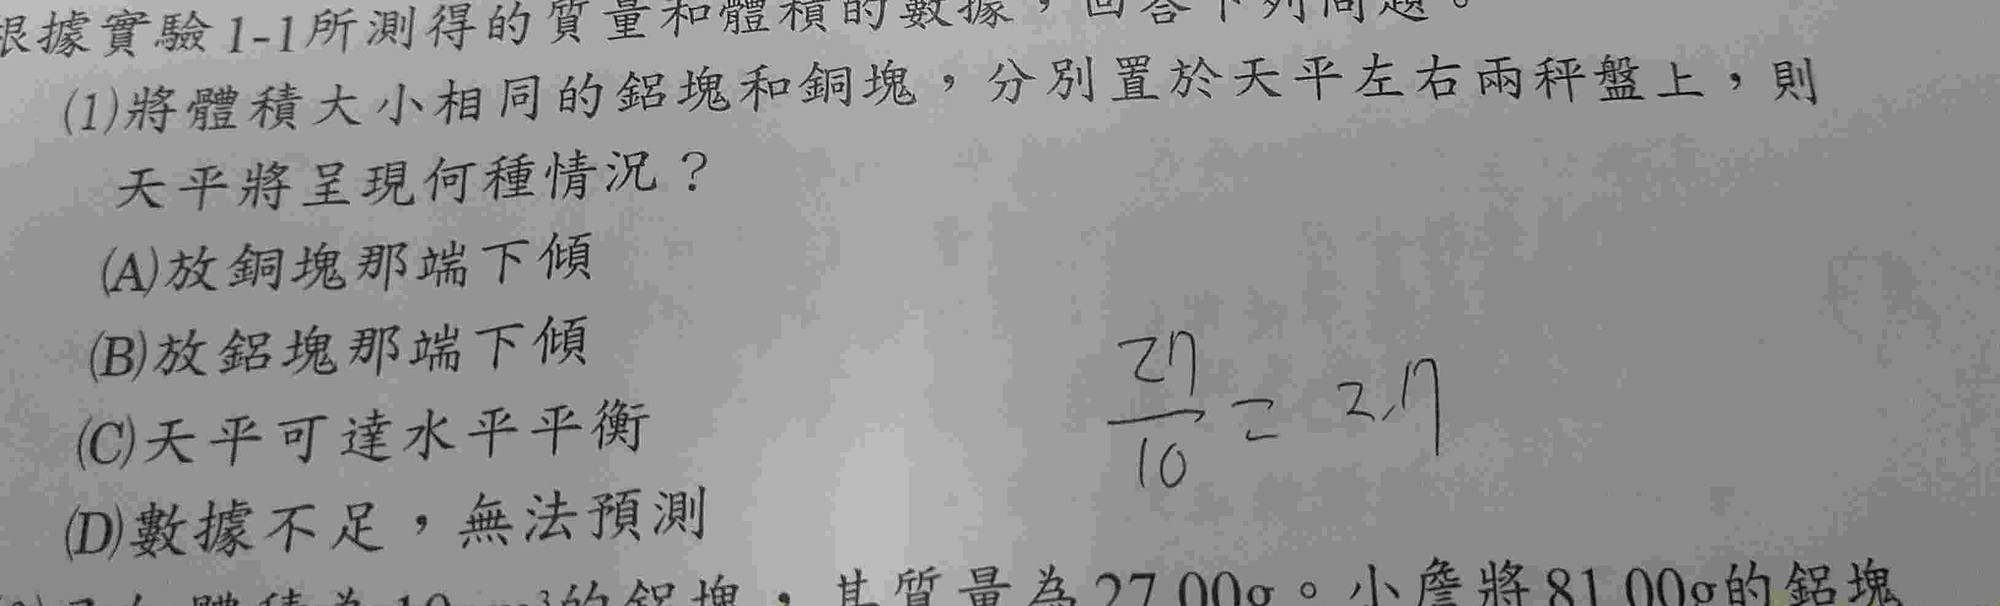 根據實驗1-1所測得的質量和體積的數據，回答下列問題。
(1)將體積大小相同的鋁塊和銅塊，分別置於天平左右兩秤盤上，則
天平將呈現何種情況？
(A)放銅塊那端下傾
(B)放鋁塊那端下傾
(C)天平可達水平平衡
(D)數據不足，無法預測
27
10
= 2.7
體積為10cm³的鋁塊，其質量為27.00g。小詹將81.00g的鋁塊